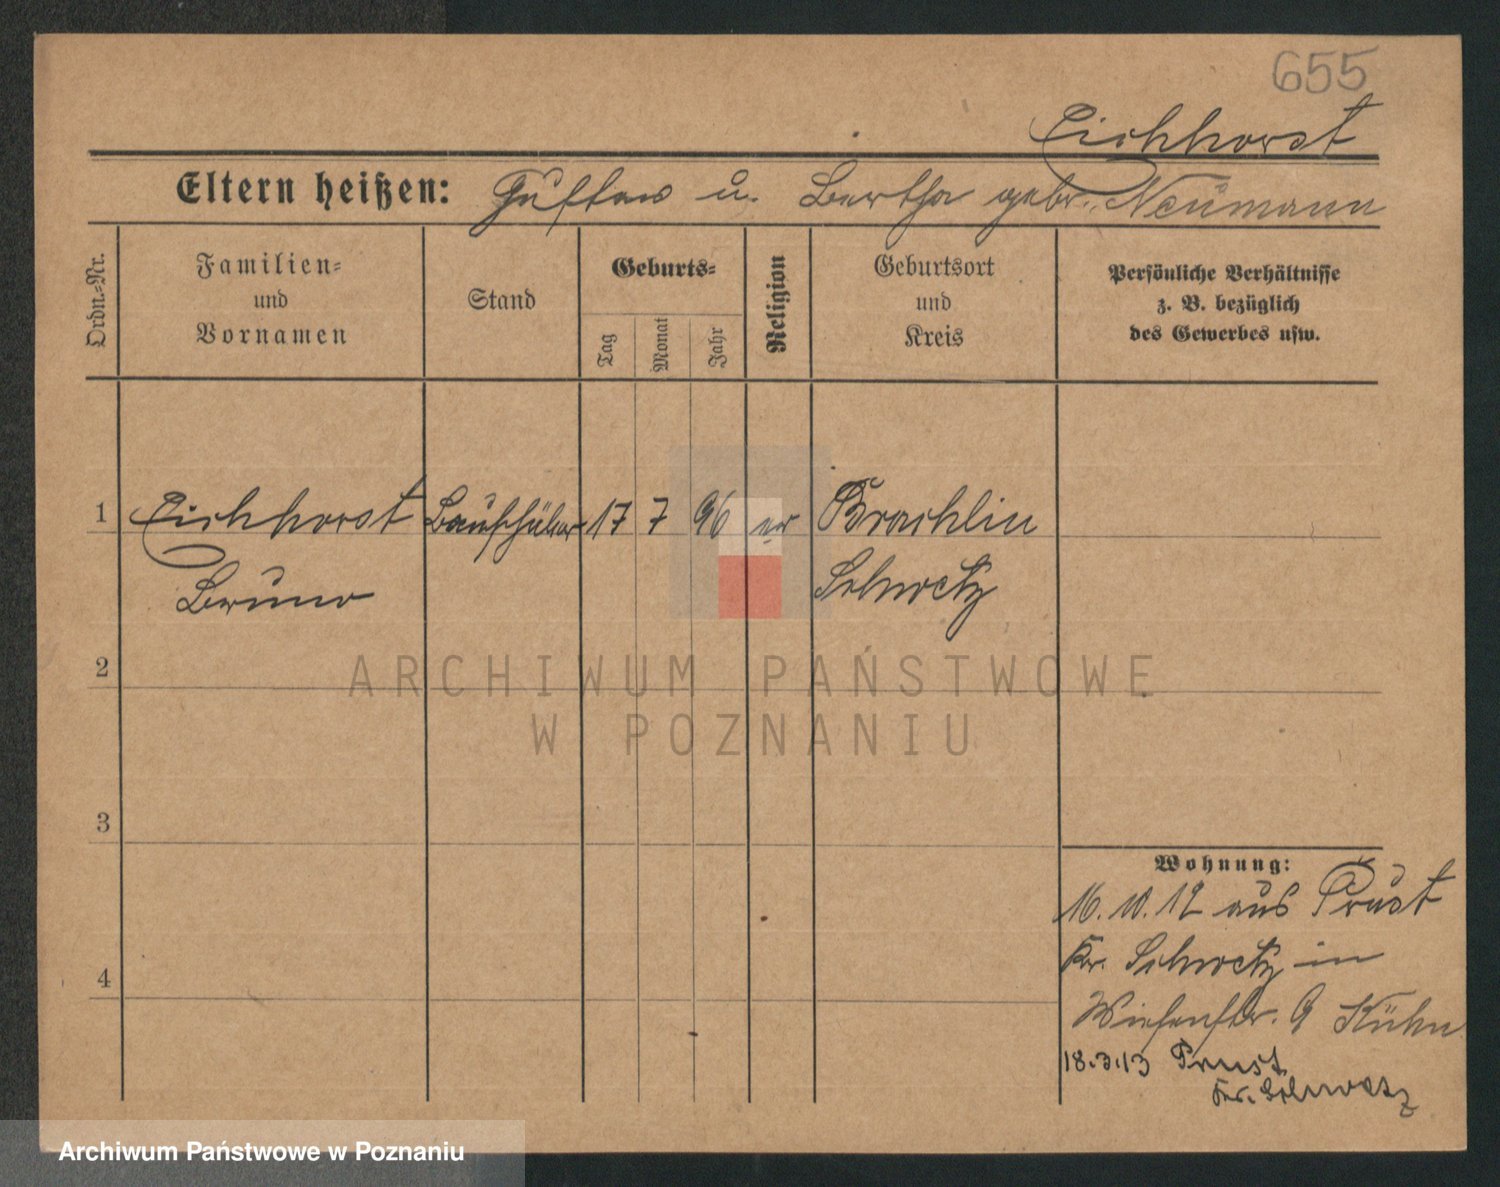 655
Eichhorst
Eltern heißen: Gustav u. Bertha geb. Neumann
Ordn.-Nr.
Familien-
und
Vornamen
Stand
Geburts-
Tag
Monat
Jahr
Religion
Geburtsort
und
Kreis
Persönliche Verhältnisse
z. B. bezüglich
des Gewerbes usw.
1 Eichhorst Bauschüler 17 7 96 ev Brachlin
Bruno Schwetz
2
ARCHIWUM PAŃSTWOWE
W POZNANIU
3
Wohnung:
16.10.12 aus Prust
4 Kr. Schwetz in
Wiesenstr. 9 Kühn
18.3.13 Prust
Kr. Schwetz
Archiwum Państwowe w Poznaniu